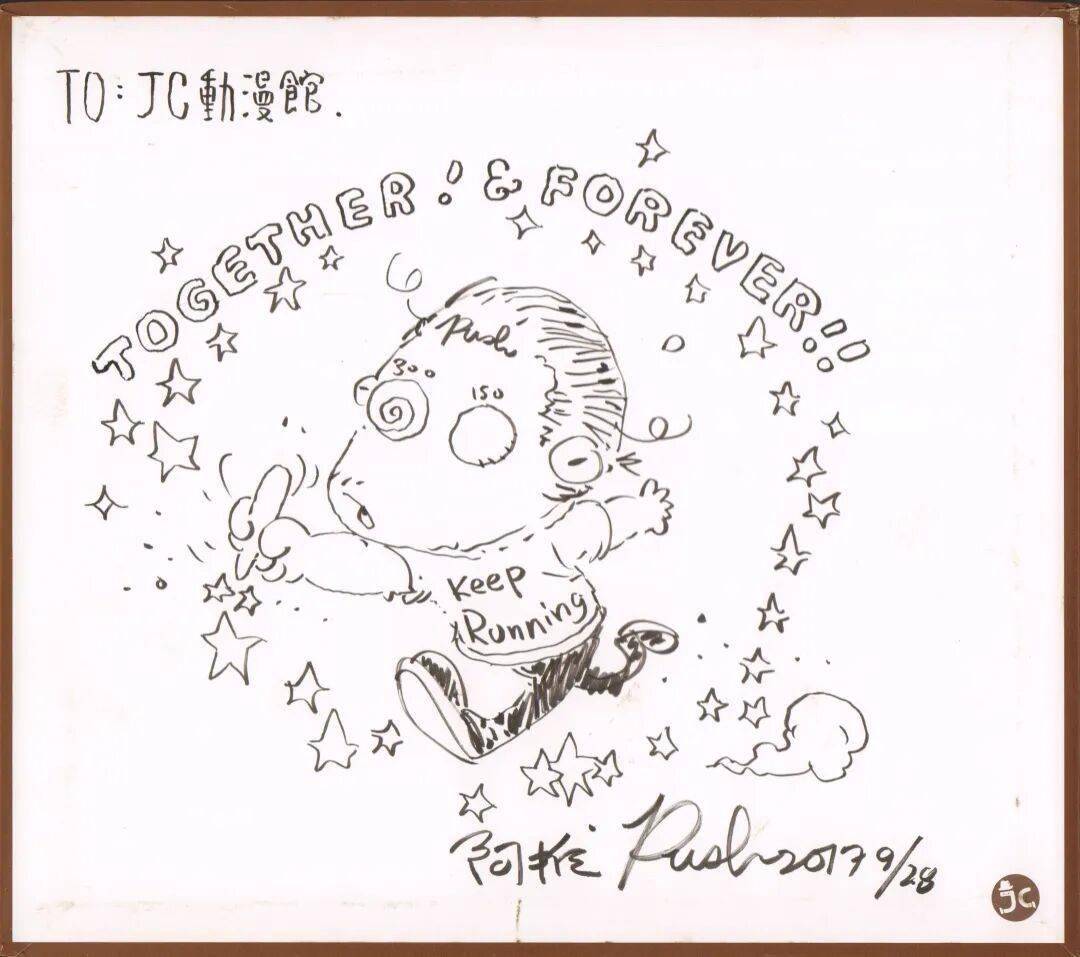 TO: JC動漫館.
TOGETHER! & FOREVER!!
Push
300
150
Keep
Running
阿推 Push 2017 9/28
JC